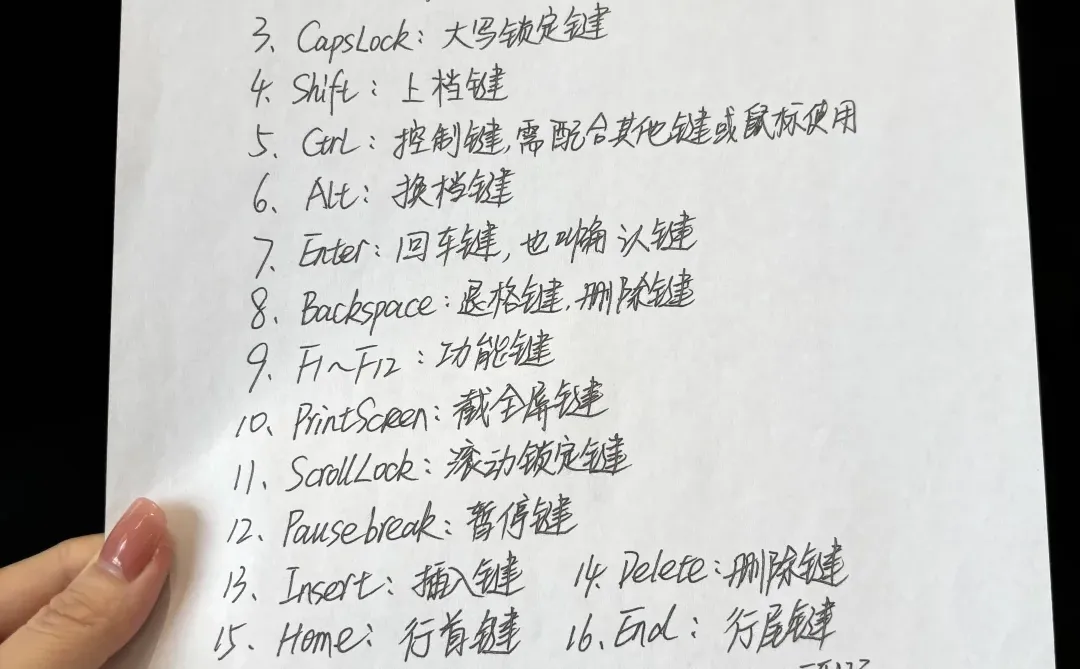 3、CapsLock：大写锁定键
4、Shift：上档键
5、Ctrl：控制键,需配合其他键或鼠标使用
6、Alt：换档键
7、Enter：回车键,也叫确认键
8、Backspace：退格键,删除键
9、F1~F12：功能键
10、PrintScreen：截全屏键
11、ScrollLock：滚动锁定键
12、Pausebreak：暂停键
13、Insert：插入键 14、Delete：删除键
15、Home：行首键 16、End：行尾键